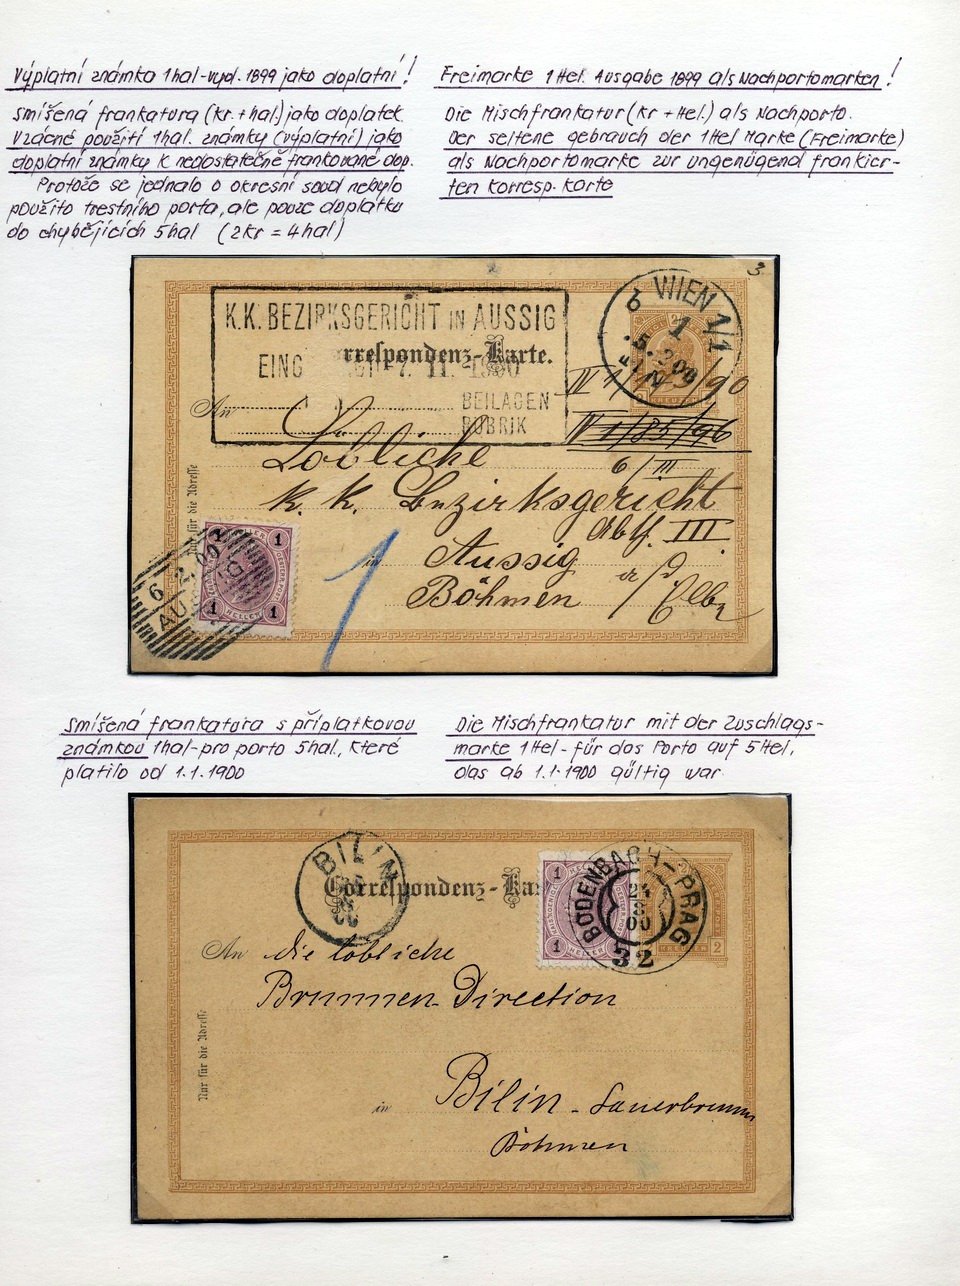 Výplatní známka 1hal-vyd. 1899 jako doplatní!
Smíšená frankatura (kr. + hal.) jako doplatek.
Vzácné použití 1hal. známky (výplatní) jako
doplatní známky k nedostatečně frankované dop.
Protože se jednalo o okresní soud nebylo
použito trestního porta, ale pouze doplatku
do chybějících 5hal (2kr = 4hal)
Freimarke 1 Hel. Ausgabe 1899 als Nachportomarken!
Die Mischfrankatur (Kr + Hel.) als Nachporto.
Der seltene gebrauch der 1 Hel Marke (Freimarke)
als Nachportomarke zur ungenügend frankier-
ten Korresp. Karte
3
K.K. BEZIRKSGERICHT IN AUSSIG
Correspondenz-Karte.
BEILAGEN
RUBRIK
WIEN 1/1
6 1
.5.2.00
An
Löbliche
k. k. Bezirksgericht
Abth. III
Aussig
in
Böhmen a/d Elbe
6/III
Nur für die Adresse
1
1 1
HELLER
6 2 00
AU
1
Smíšená frankatura s příplatkovou
známkou 1hal-pro porto 5hal, které
platilo od 1.1.1900
Die Mischfrankatur mit der Zuschlags-
marke 1 Hel- für das Porto auf 5 Hel,
das ab 1.1.1900 gültig war.
BILIN
Correspondenz-Kar
1
1
HELLER
BODENBACH-PRAG
00
32
2
An die löbliche
Brunnen-Direction
Nur für die Adresse
in Bilin - Sauerbrunn
Böhmen